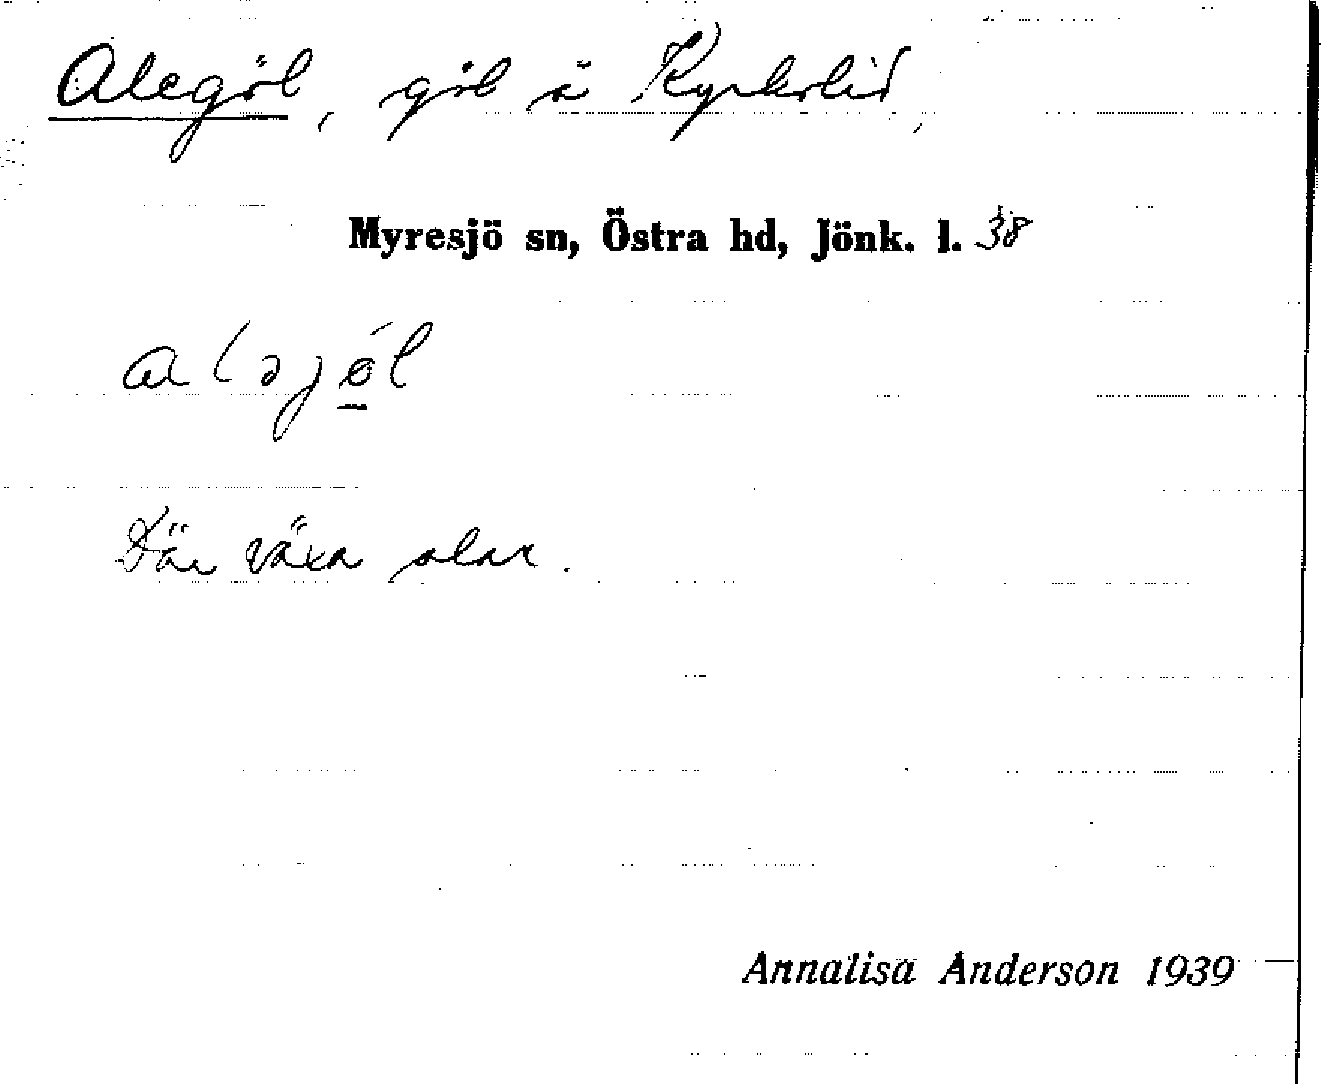 Alegöl, göl å Kyrkolid,
Myresjö sn, Östra hd, Jönk. l. 38
aləjö̱l
Där växa alar.
Annalisa Anderson 1939